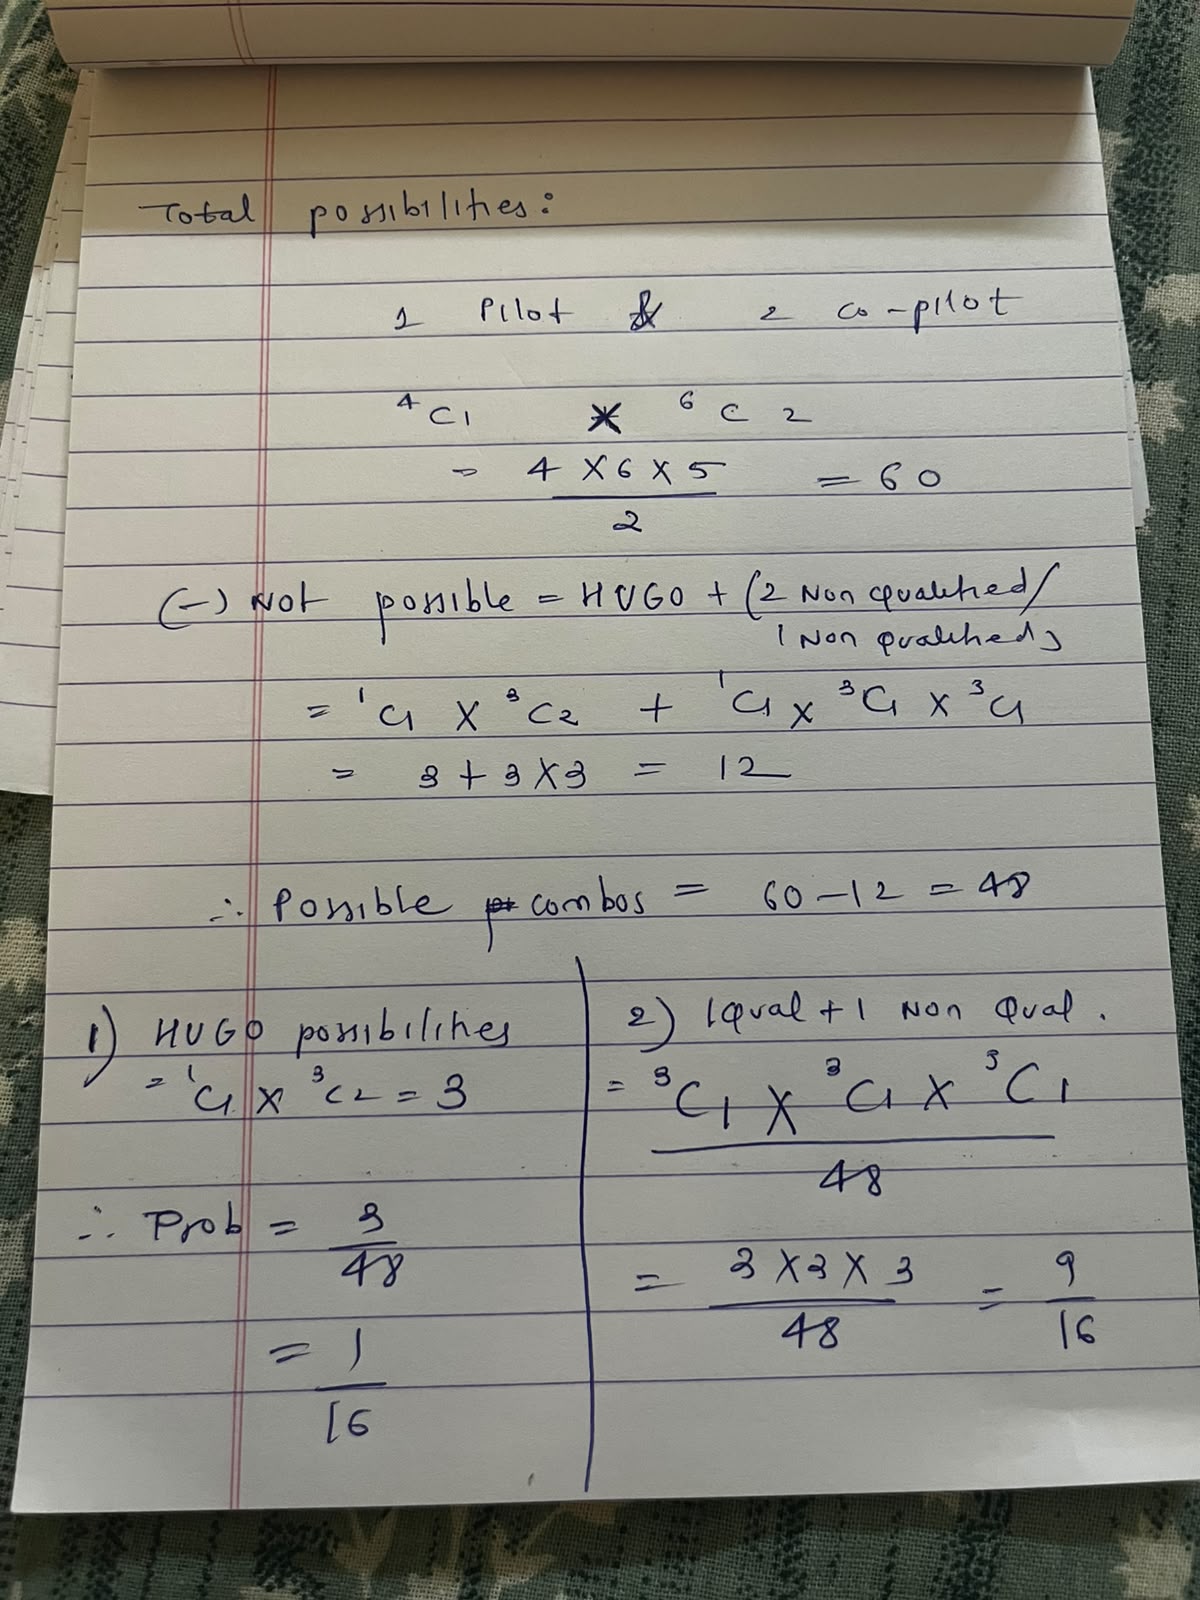 Total possibilities:
1 Pilot & 2 co-pilot
⁴C1 * ⁶C2
= 4 X 6 X 5 / 2 = 60
(-) Not possible = HUGO + (2 Non qualified/
1 Non qualified)
= ¹C1 X ³C2 + ¹C1 X ³C1 X ³C1
= 3 + 3 X 3 = 12
∴ Possible combos = 60 - 12 = 48
1) HUGO possibilities
= ¹C1 X ³C2 = 3
∴ Prob = 3 / 48
= 1 / 16
2) 1 Qual + 1 Non Qual.
= ³C1 X ³C1 X ³C1 / 48
= 3 X 3 X 3 / 48 = 9 / 16